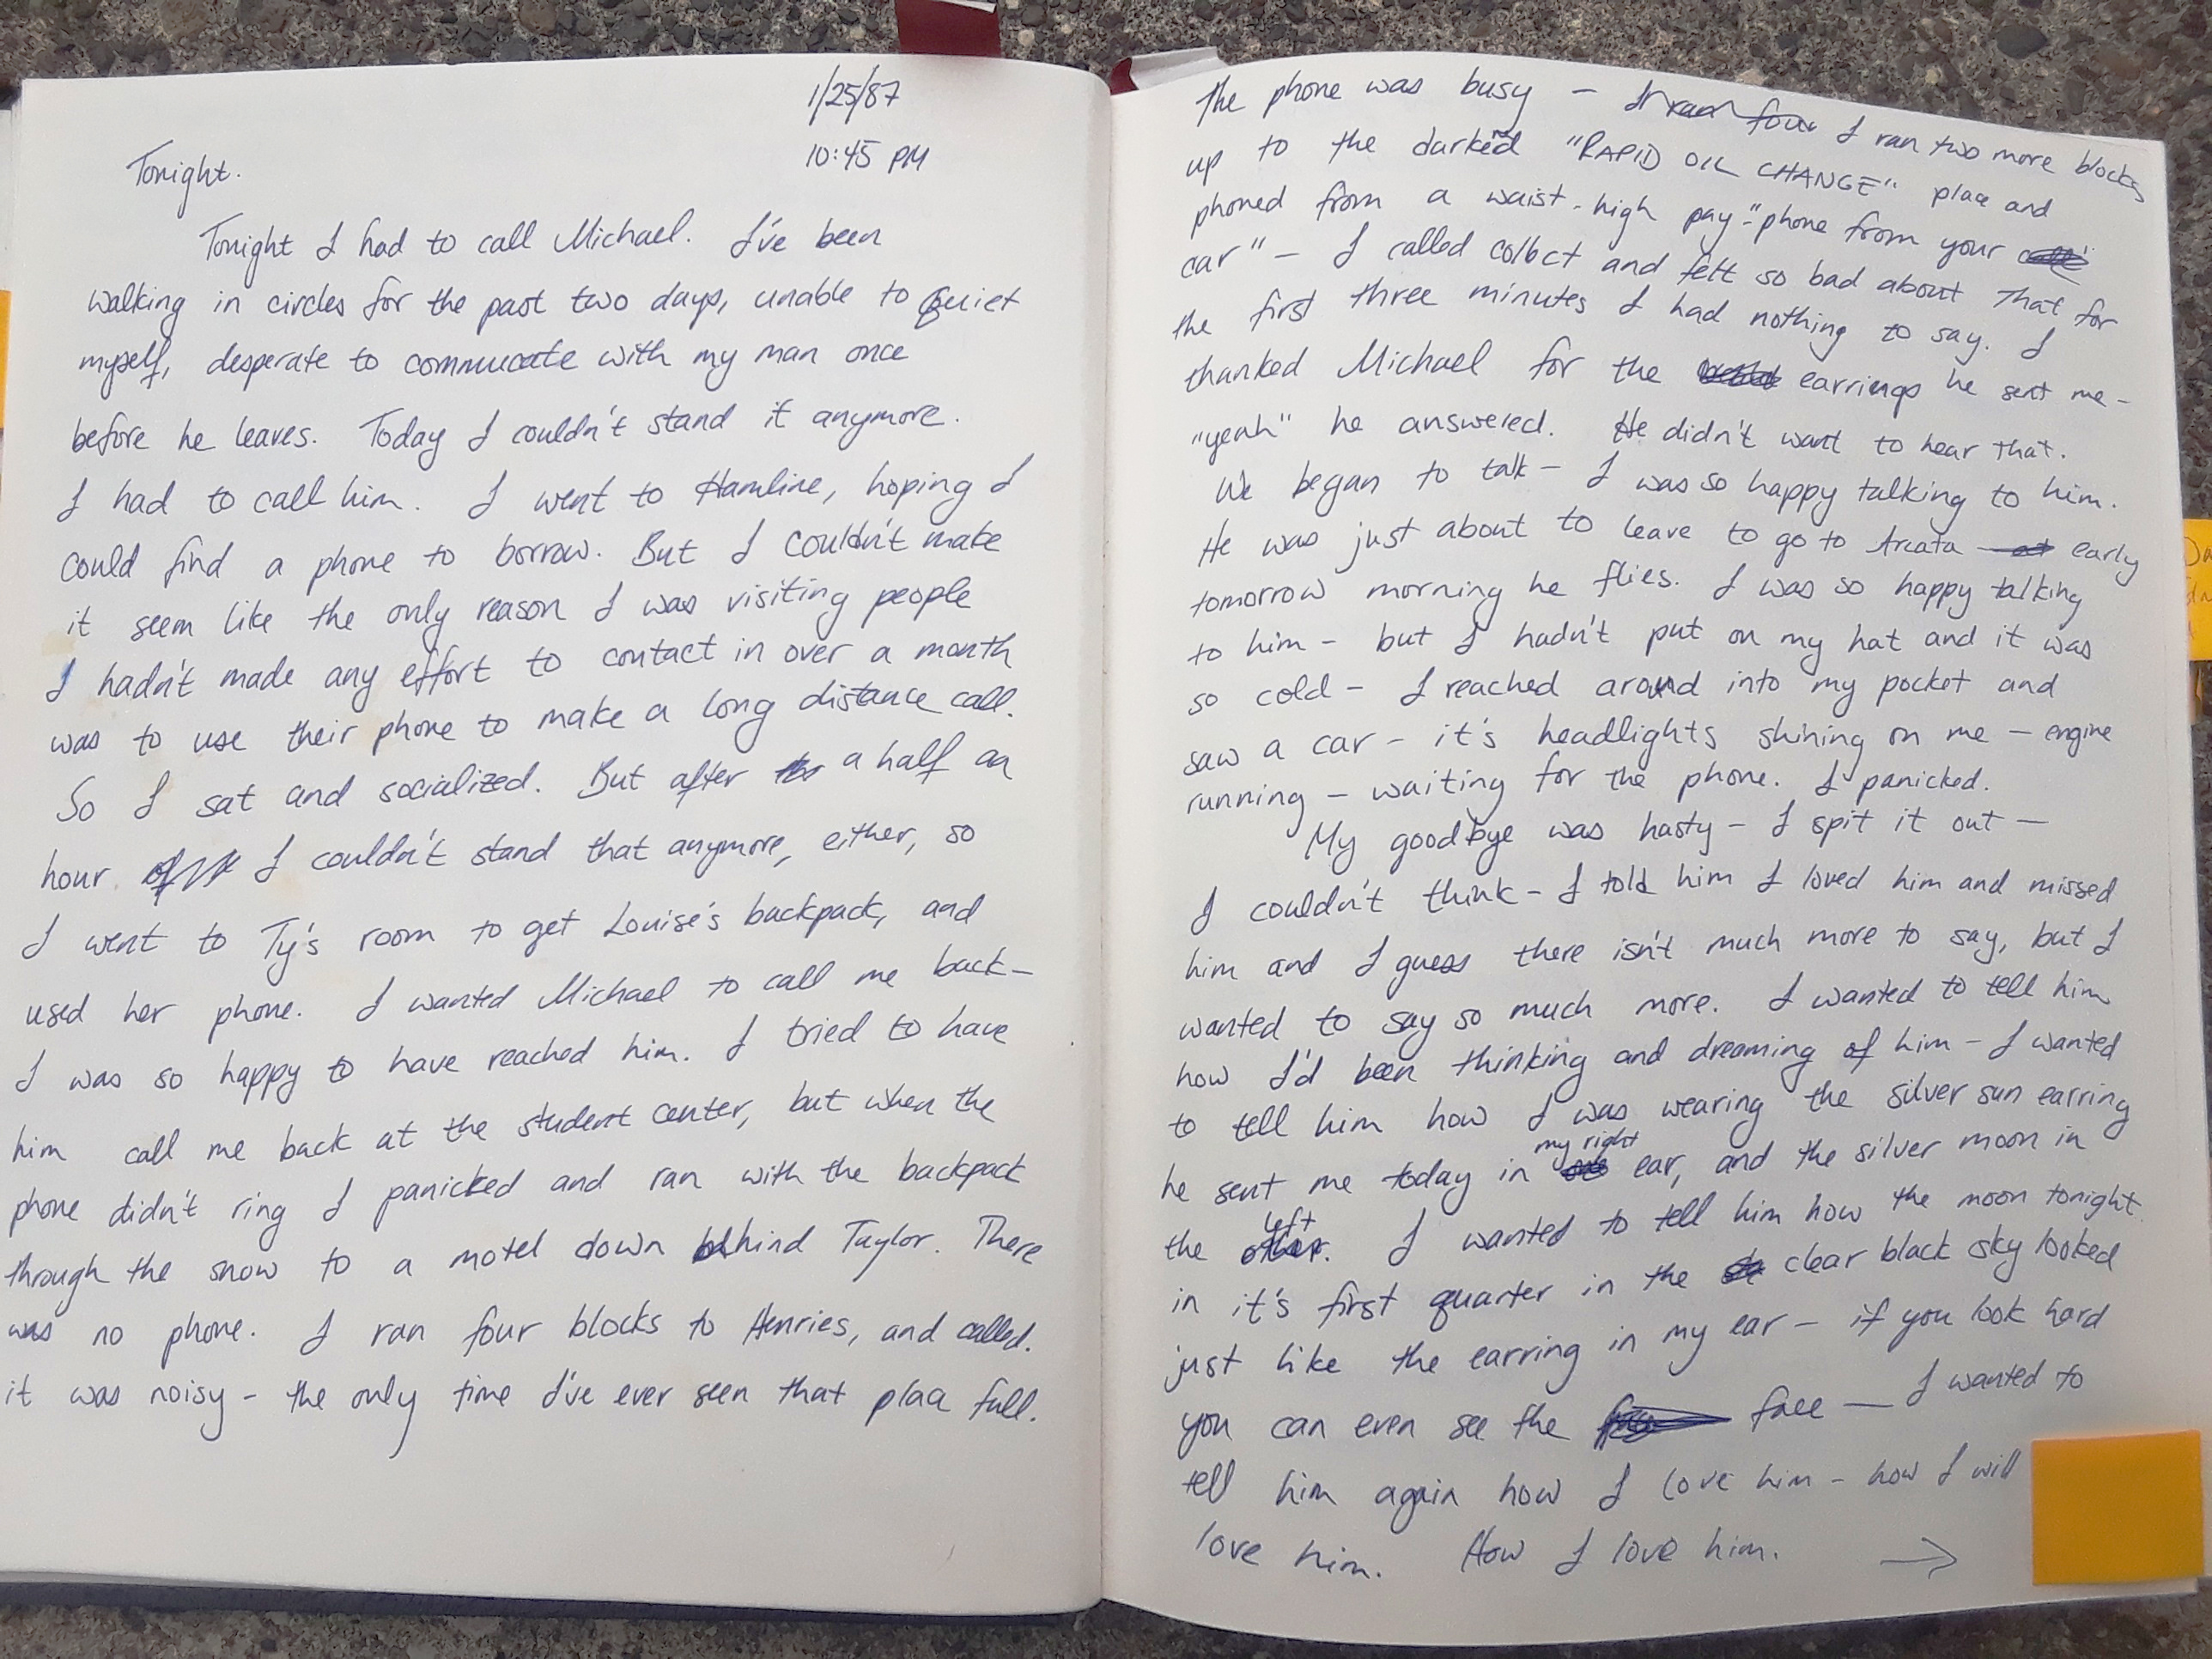 1/25/87
10:45 PM
Tonight.
Tonight I had to call Michael. I've been
walking in circles for the past two days, unable to quiet
myself, desperate to commucate with my man once
before he leaves. Today I couldn't stand it anymore.
I had to call him. I went to Hamline, hoping I
could find a phone to borrow. But I couldn't make
it seem like the only reason I was visiting people
I hadn't made any effort to contact in over a month
was to use their phone to make a long distance call.
So I sat and socialized. But after a half an
hour I couldn't stand that anymore, either, so
I went to Ty's room to get Louise's backpack, and
used her phone. I wanted Michael to call me back—
I was so happy to have reached him. I tried to have
him call me back at the student center, but when the
phone didn't ring I panicked and ran with the backpack
through the snow to a motel down behind Taylor. There
was no phone. I ran four blocks to Henries, and called.
it was noisy - the only time I've ever seen that place full.
The phone was busy — I ran four I ran two more blocks
up to the darked "RAPID OIL CHANGE" place and
phoned from a waist-high pay-"phone from your
car" — I called collect and felt so bad about that for
the first three minutes I had nothing to say. I
thanked Michael for the earrings he sent me -
"yeah" he answered. He didn't want to hear that.
We began to talk — I was so happy talking to him.
He was just about to leave to go to Arcata — early
tomorrow morning he flies. I was so happy talking
to him - but I hadn't put on my hat and it was
so cold - I reached around into my pocket and
saw a car - it's headlights shining on me — engine
running — waiting for the phone. I panicked.
My goodbye was hasty - I spit it out —
I couldn't think - I told him I loved him and missed
him and I guess there isn't much more to say, but I
wanted to say so much more. I wanted to tell him
how I'd been thinking and dreaming of him - I wanted
to tell him how I was wearing the silver sun earring
he sent me today in my right ear, and the silver moon in
the left other. I wanted to tell him how the moon tonight
in it's first quarter in the clear black sky looked
just like the earring in my ear - if you look hard
you can even see the face — I wanted to
tell him again how I love him - how I will
love him. How I love him. →